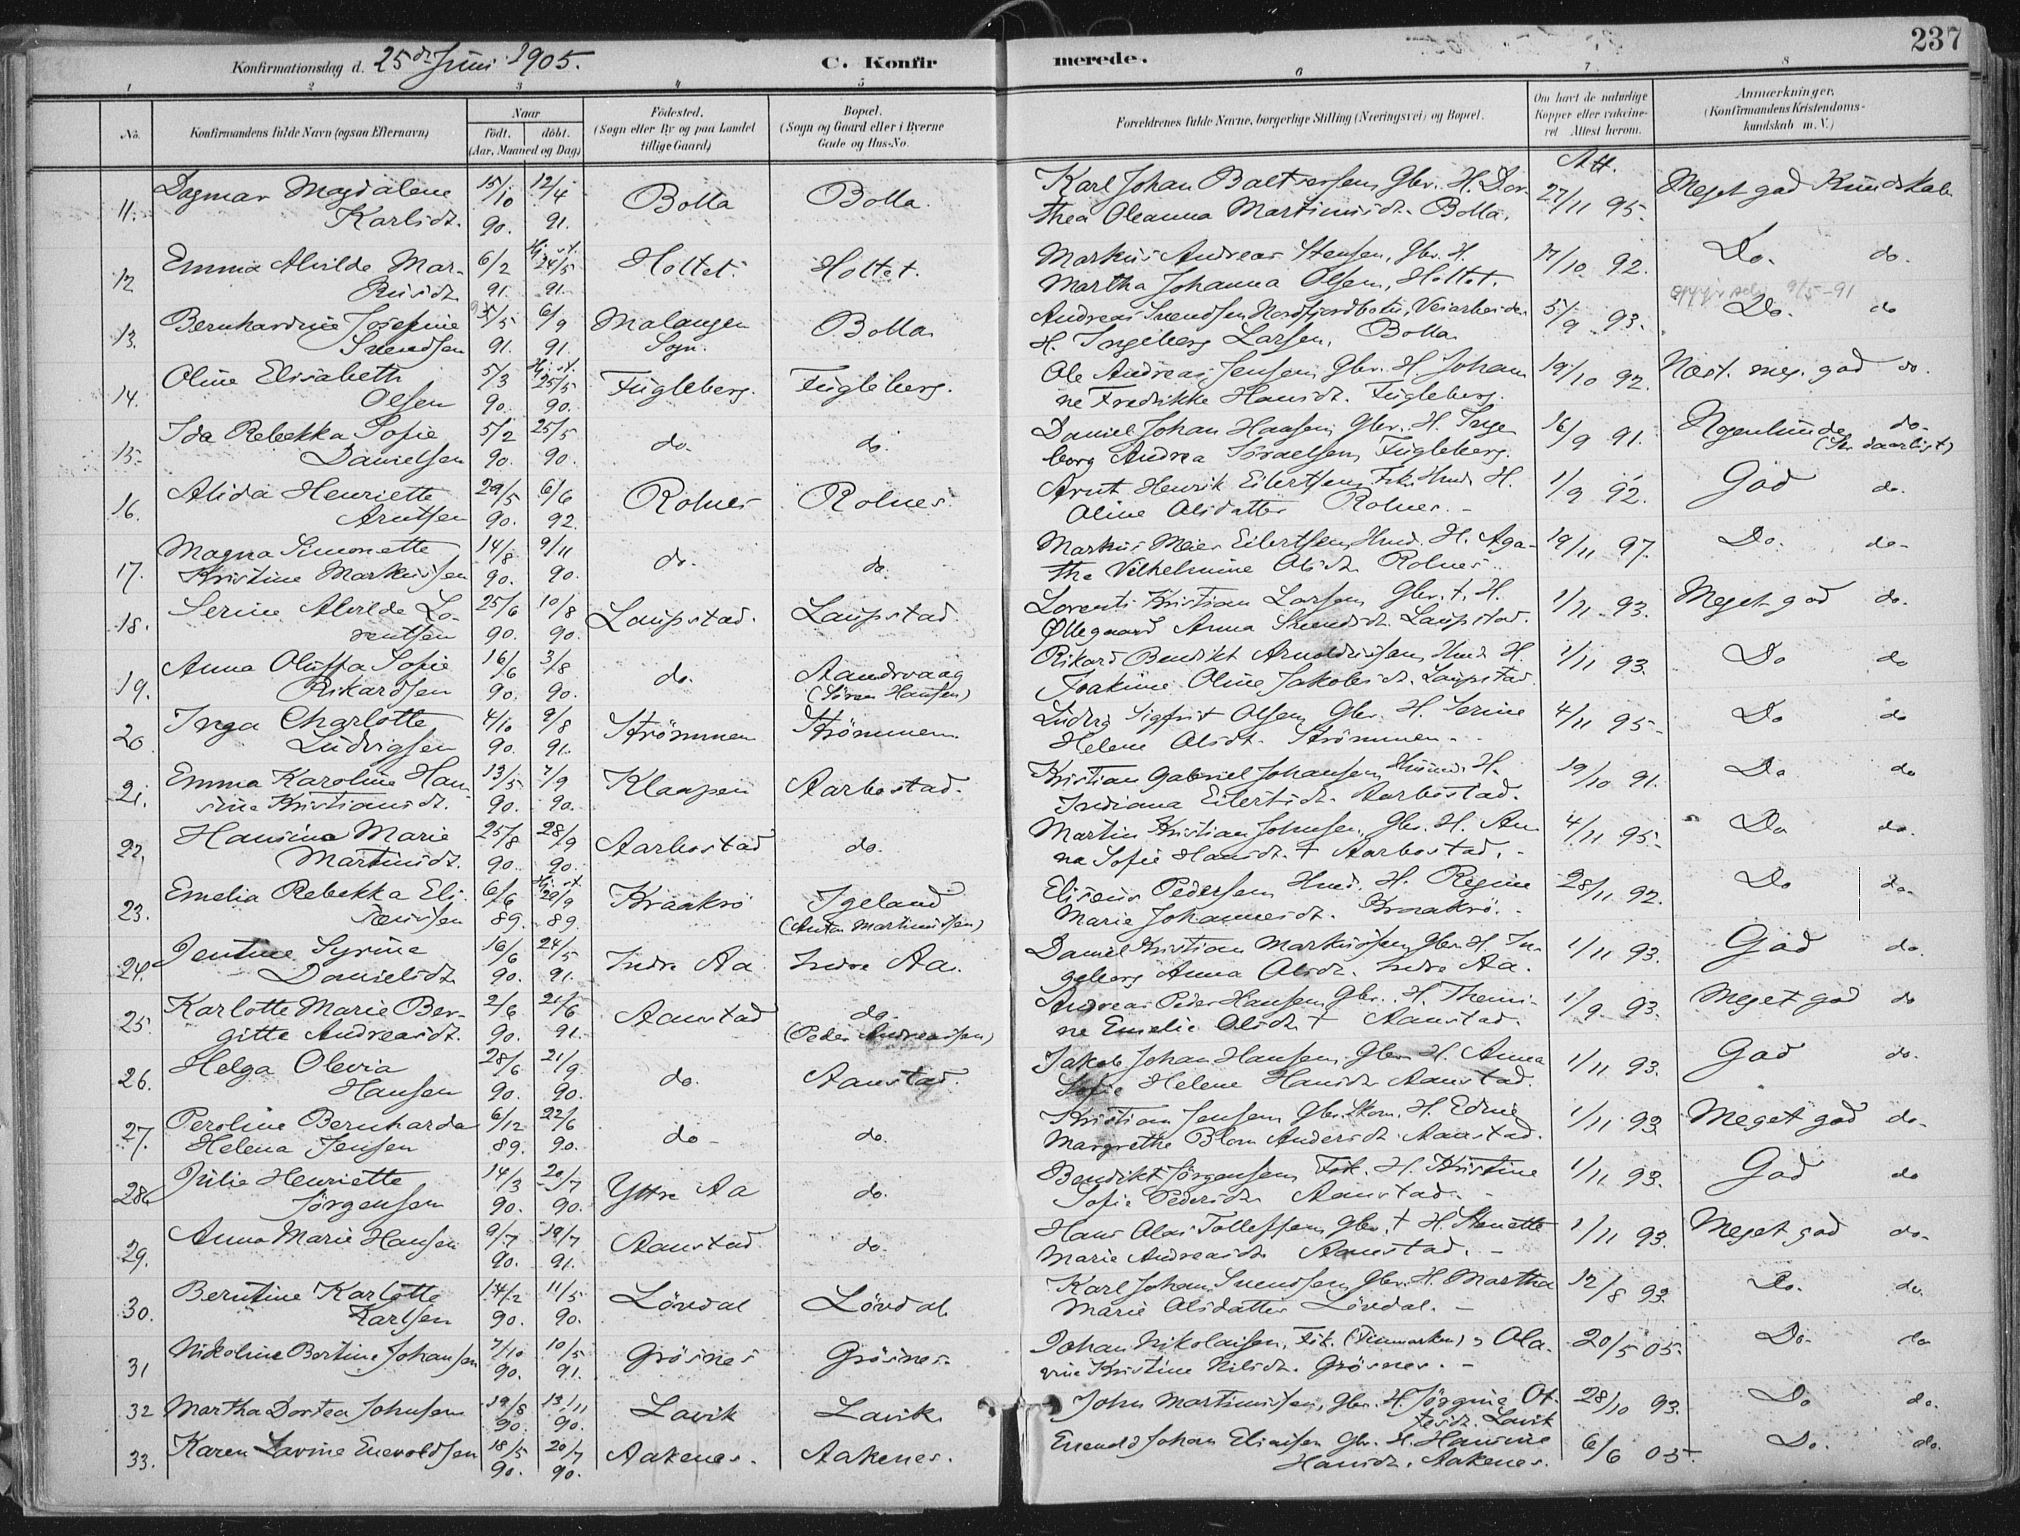 237
Konfirmationsdag d. 25de Juni 1905.
C. Konfirmerede.
1 2 3 4 5 6 7 8
No.
Konfirmandens fulde Navn (ogsaa Efternavn)
Naar
født. døbt.
(Aar, Maaned og Dag)
Fødested.
(Sogn eller By og paa Landet
tillige Gaard)
Bopæl.
(Sogn og Gaard eller i Byerne
Gade og Hus-No.
Forældrenes fulde Navne, borgerlige Stilling (Næringsvei) og Bopæl.
Om havt de naturlige
Kopper eller vakcine-
ret Attest herom.
Anmærkninger.
(Konfirmandens Kristendoms-
kundskab m. V.)
Att.
Dagmar Magdalene 15/10 12/4 Bolla Bolla. Karl Johan Baltsersen, Gbr. H. Dor- 27/11 95. Meget god Kundskab
11. Karlsdt. 90. 91. thea Oleanna Martinusdt. Bolla.
Emma Alvilde Mar- 6/2 Hj. st. 24/5 Holtet. Holtet. Markus Andreas Stensen, Gbr. H. 17/10 92. Do. do.
12 kusdt. 91. 91. Martha Johanna Olsen, Holtet.
9/5-91
Bernhardine Josefine 5/5 6/9 Malangen Bolla Andreas Svendsen Nordfjordbotn, Veiarbeider 5/9 93. Do. do
13. Svendsen 91. 91. Sogn. H. Ingeborg Larsen, Bolla
Oline Elisabeth 5/3 Hj. st. 25/5 Fugleberg. Fugleberg. Ole Andreas Jensen, Gbr. H. Johan 19/10 92. Næst. meg. god do.
14. Olsen 90. 90. ne Fredrikke Hansdt. Fugleberg.
Ida Rebekka Sofie 5/2 25/5 do. do. Daniel Johan Hansen, Gbr. H. Inge 16/9 91. Nogenlunde do.
15. Danielsen 90. 90. borg Andrea Israelsen, Fugleberg.
Alida Henriette 29/5 6/6 Rolnes Rolnes. Arnt Henrik Eilertsen, Fsk. Hmd. H. 1/9 92. God do.
16. Arntsen 90. 92. Oline Olsdatter Rolnes.
Magna Simonette 14/8 9/11 do. do. Markus Meier Eilertsen, Hmd. H. Aga- 19/11 97. Do. do.
17. Kristine Markussen 90. 90. the Vilhelmine Olsdt. Rolnes.
Serine Alvilde Lo- 25/6 10/8 Laupstad. Laupstad. Lorents Kristian Larsen, Gbr. †. H. 1/11 93. Meget god do.
18. rentsen 90. 90. Øllegaard Anna Svendsdt. Laupstad.
Anna Oluffa Sofie 16/6 3/8 do. Aandvaag Rikard Benedikt Arnoldussen, Hmd. H. 1/11 93. Do do
19. Rikardsen 90. 90. (Søren Hansen) Joakime Oline Jakobsdt. Laupstad
Inga Charlotte 4/10 9/8 Strømmen Strømmen. Ludvig Sigfrit Olsen Gbr. H. Serine 4/11 95. Do do
20. Ludvigsen 90. 91. Helene Olsdt. Strømmen.
Emma Karoline Han 13/5 7/9 Klaapen Aarbostad. Kristian Gabriel Johansen, Husmd. H. 19/10 91. Do do
21. sine Kristiansdt. 90. 90. Indiana Eilertsdt. Aarbostad.
Hansina Marie 25/8 28/9 Aarbostad do. Martin Kristian Johnsen, Gbr. H. An 4/11 95. Do do.
22. Martinsdt. 90. 90. na Sofie Hansdt. † Aarbostad.
Emelia Rebekka Eli- 6/6 Hj. st. 29/9 Kraakrø Igeland Elisæus Pedersen Hmd. H. Regine 28/11 92. Do do.
23. sæussen 89. 89. (Anton Martinussen) Marie Johannesdt. Kraakrø.
Jentine Syrine 16/6 24/5 Indre Aa Indre Aa. Daniel Kristian Markussen, Gbr. H. In- 1/11 93. God do.
24. Danielsdt. 90. 91. geborg Anna Olsdt. Indre Aa.
Karlotte Marie Ber- 2/6 21/6 Aanstad do. Andreas Peder Hansen, Gbr. H. Themi- 1/9 93. Meget god do
25. gitte Andreasdt. 90. 91. (Peder Andreassen) ne Emelie Olsdt † Aanstad.
Helga Olevia 28/6 21/9 do. Aanstad. Jakob Johan Hansen, Gbr. H. Anna 1/11 93. God do.
26. Hansen 90. 90. Sofie Helene Hansdt Aanstad.
Peroline Bernharda 6/12 22/6 do. do. Kristian Jensen, Gbr. Skom. H. Edvie 1/11 93. Meget god do.
27. Helena Jensen 89. 90. Margrethe Blom Andersdt. Aanstad.
Julie Henriette 14/3 20/7 Yttre Aa do. Benedikt Jørgensen, Fsk. H. Kristine 1/11 93. God do
28. Jørgensen 90. 90. Sofie Pedersdt. Aanstad.
Anna Marie Hansen 9/7 19/7 Aanstad do. Hans Olai Tollefsen, Gbr. † H. Anette 1/11 93. Meget god do.
29. 90. 91. Marie Andreasdt. Aanstad.
Berntine Karlotte 14/2 11/5 Løvdal Løvdal. Karl Johan Svendsen, Gbr. H. Martha 12/8 93. Do. do.
30. Karlsen 90. 90. Marie Olsdatter Løvdal.
Nikoline Bertine Johansen 7/10 10/5 Grøsnes Grøsnes. Johan Nikolaisen, Fsk. (Finmarken) og Ola- 20/5 05. Do. do
31 90. 91. vine Kristine Nilsdt. Grøsnes.
32 Martha Dortea Johnsen 19/8 13/11 Lavik Lavik John Martinussen, Gbr. H. Jørgine Ot- 28/10 93. Do do.
90. 90. tosdt. Lavik
Karen Lavine Enevoldsen 18/5 20/7 Aakenes. Aakenes. Enevold Johan Eliassen Gbr. H. Hansine 6/6 05. Do. do.
33. 90. 90. Hansdt. Aakenes.